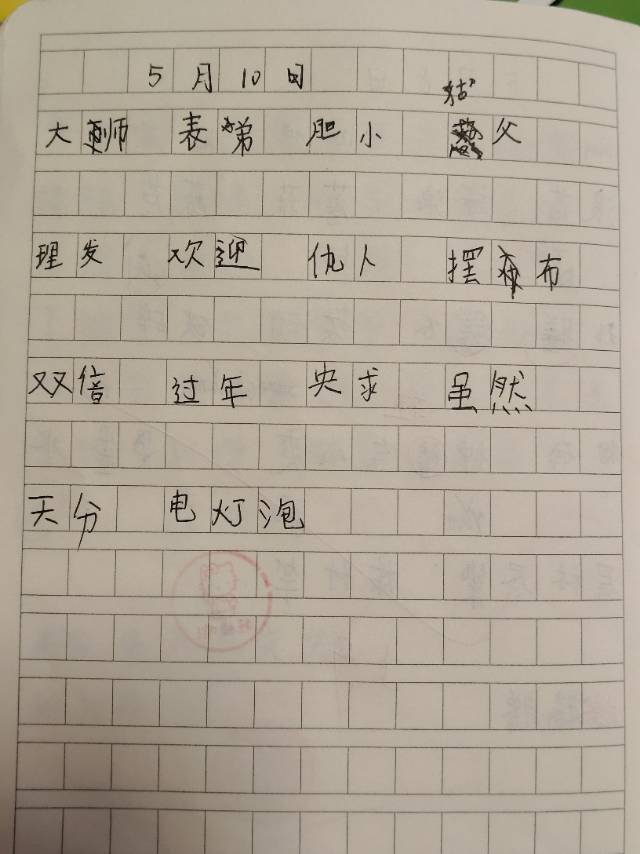 5月10日
大师 表弟 胆小 姑父
理发 欢迎 仇人 摆布
双倍 过年 央求 虽然
天分 电灯泡